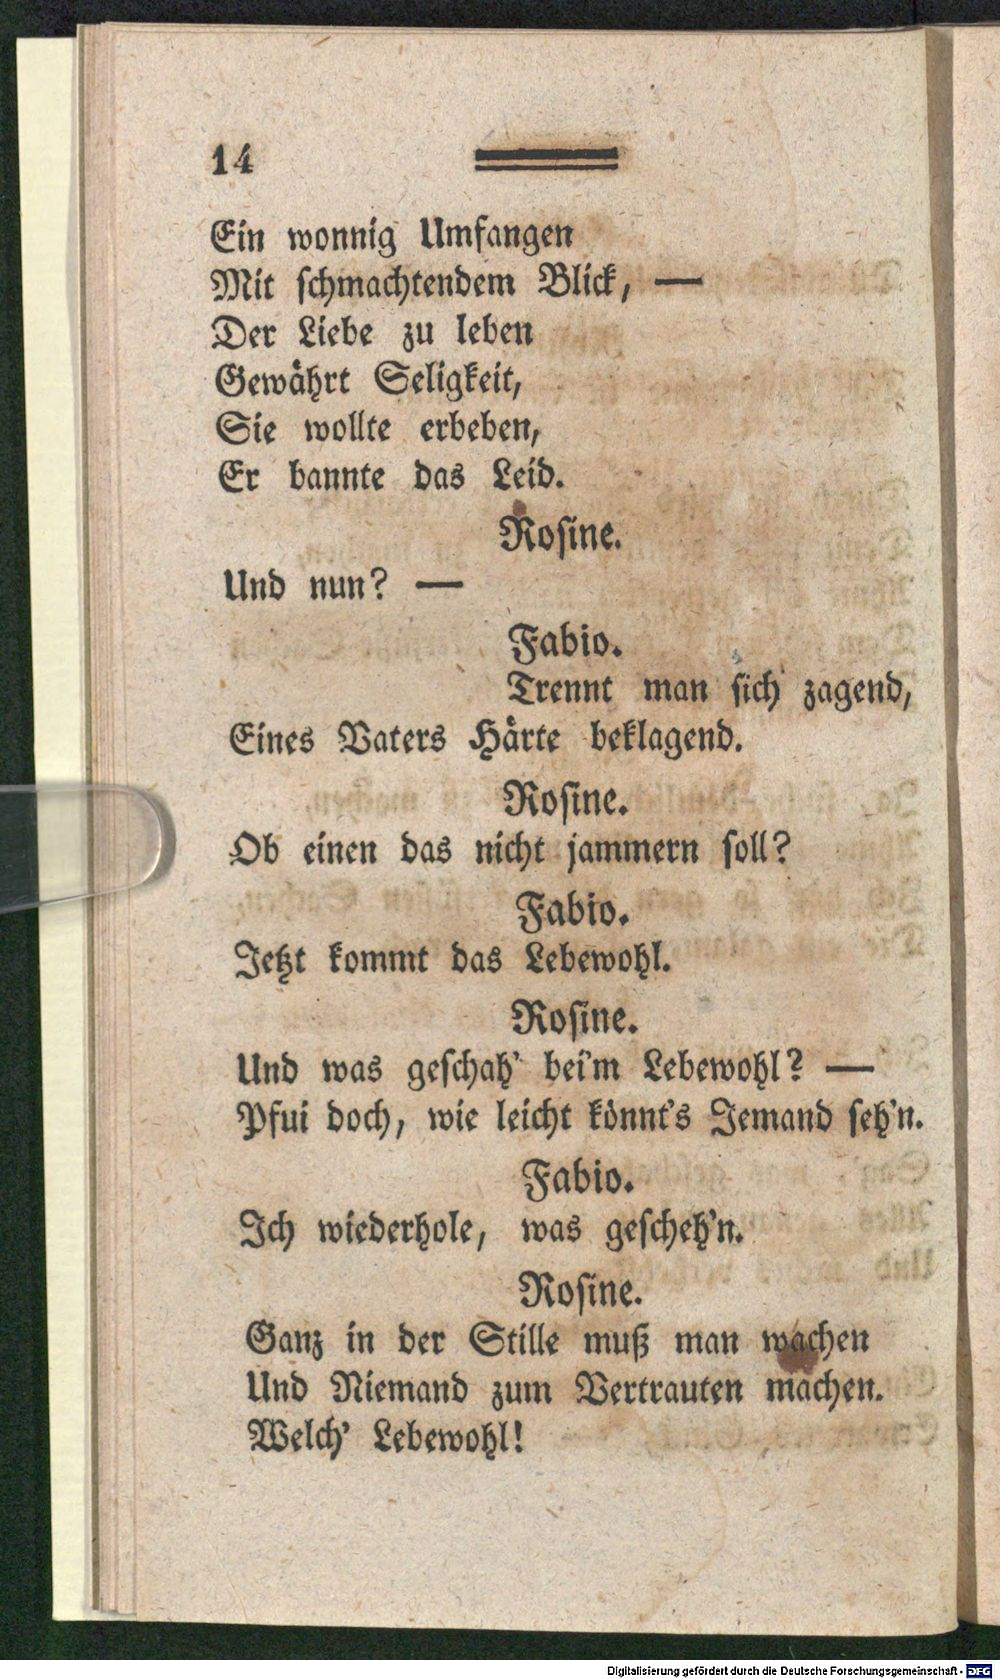 14
Ein wonnig Umfangen
Mit schmachtendem Blick, —
Der Liebe zu leben
Gewährt Seligkeit,
Sie wollte erbeben,
Er bannte das Leid.
Rosine.
Und nun? —
Fabio.
Trennt man sich zagend,
Eines Vaters Härte beklagend.
Rosine.
Ob einen das nicht jammern soll?
Fabio.
Jetzt kommt das Lebewohl.
Rosine.
Und was geschah' bei'm Lebewohl? —
Pfui doch, wie leicht könnt's Jemand seh'n.
Fabio.
Ich wiederhole, was gescheh'n.
Rosine.
Ganz in der Stille muß man wachen
Und Niemand zum Vertrauten machen.
Welch' Lebewohl!
Digitalisierung gefördert durch die Deutsche Forschungsgemeinschaft - DFG